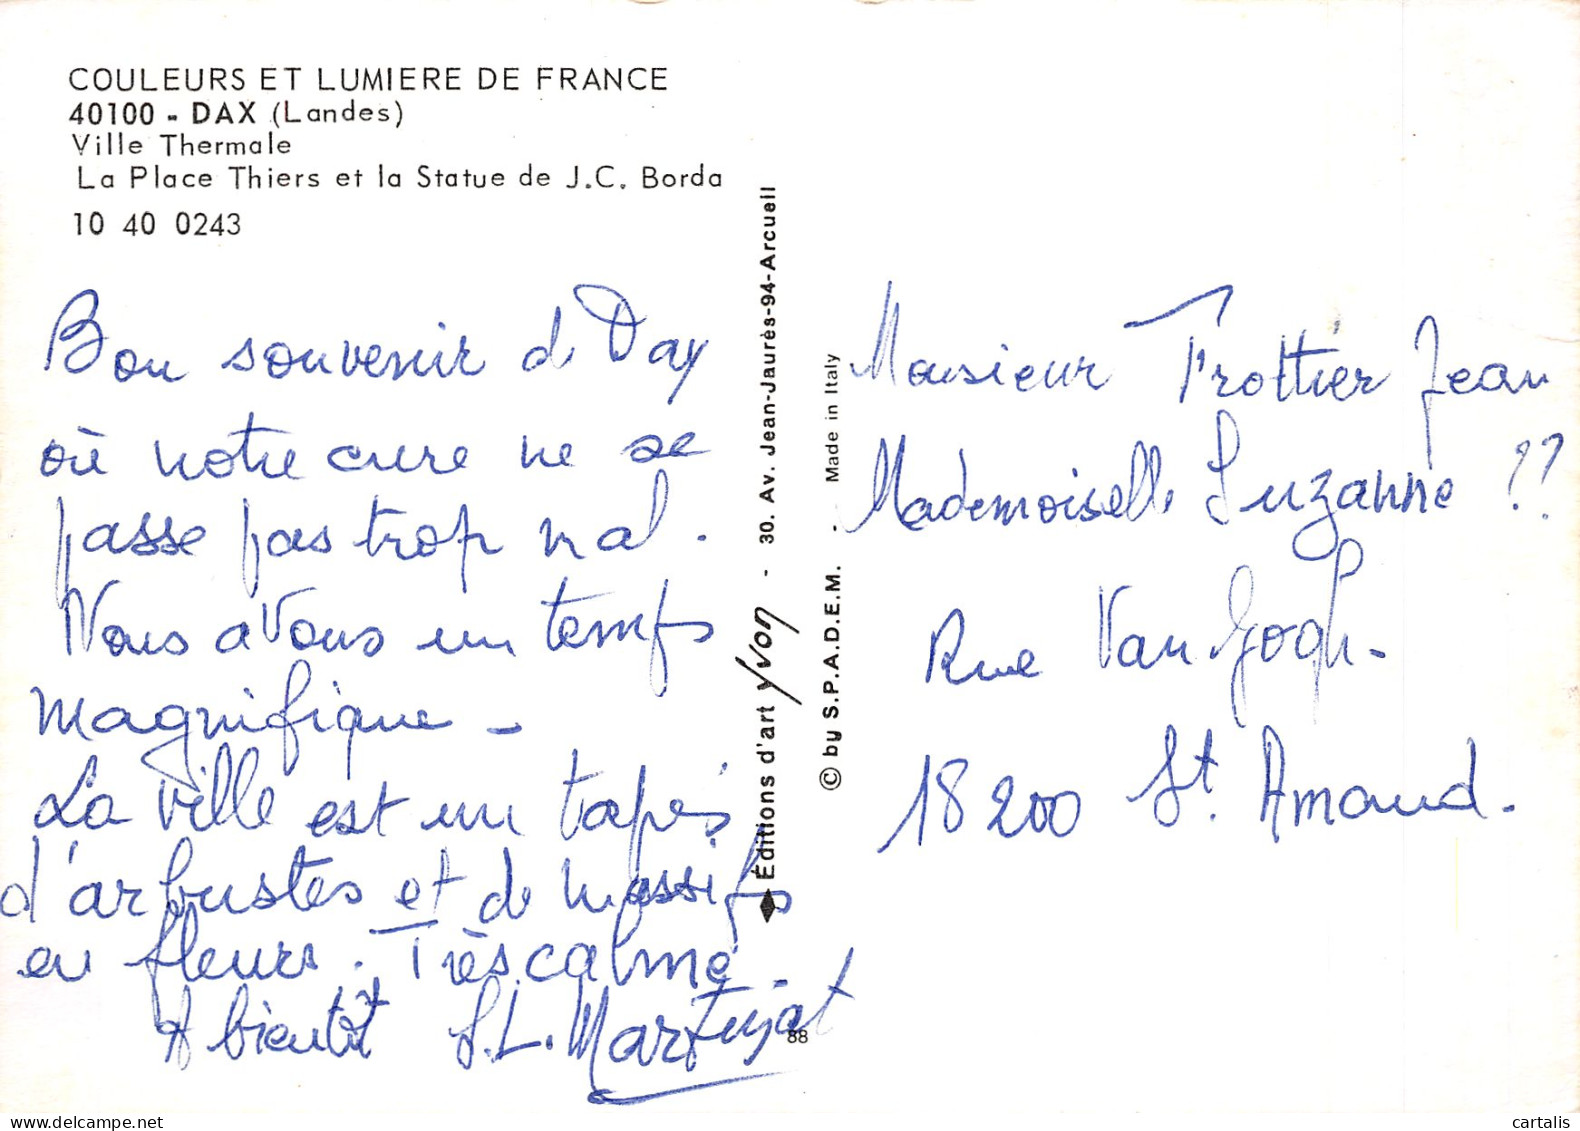 COULEURS ET LUMIERE DE FRANCE
40100 - DAX (Landes)
Ville Thermale
La Place Thiers et la Statue de J.C. Borda
10 40 0243
Bon souvenir de Dax
où notre cure ne se
passe pas trop mal.
Nous avons un temps
magnifique -
La ville est un tapis
d'arbustes et de massifs
en fleurs. Très calme -
A bientôt S.L.
88
Éditions d'art Yvon - 30. Av. Jean-Jaurès-94-Arcueil
© by S.P.A.D.E.M. - Made in Italy
Monsieur Trottier Jean
Mademoiselle Suzanne ??
Rue Van Gogh -
18200 St. Amand.
cartalis